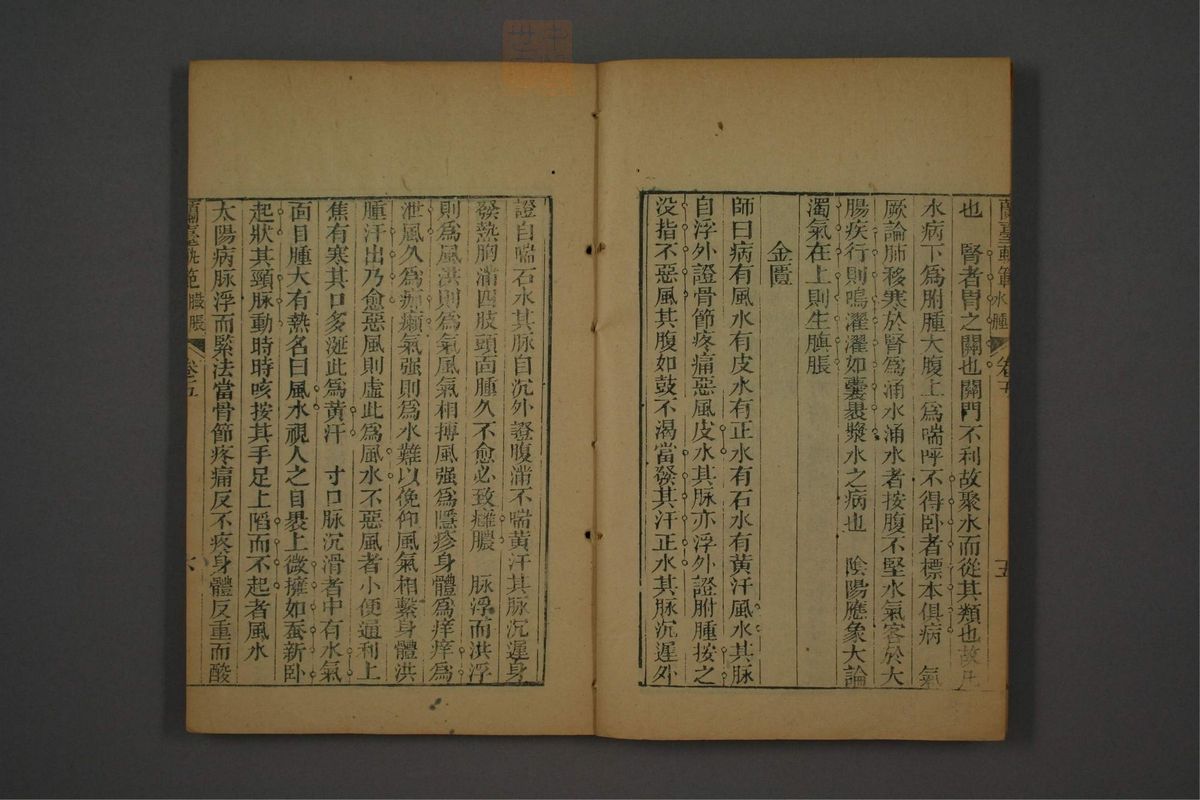 蘭臺軌範 水腫 卷五 五
也　腎者胃之關也關門不利故聚水而從其類也故凡
水病下爲胕腫大腹上爲喘呼不得臥者標本俱病　氣
厥論肺移寒於腎爲涌水涌水者按腹不堅水氣客於大
腸疾行則鳴濯濯如囊裹漿水之病也　陰陽應象大論
濁氣在上則生䐜脹
金匱
師曰病有風水有皮水有正水有石水有黃汗風水其脉
自浮外證骨節疼痛惡風皮水其脉亦浮外證胕腫按之
没指不惡風其腹如鼓不渴當發其汗正水其脉沉遲外
證自喘石水其脉自沉外證腹滿不喘黃汗其脉沉遲身
發熱胸滿四肢頭面腫久不愈必致癰膿　脉浮而洪浮
則爲風洪則爲氣風氣相搏風强爲隱疹身體爲痒痒爲
泄風久爲痂癩氣强則爲水難以俛仰風氣相繫身體洪
腫汗出乃愈惡風則虛此爲風水不惡風者小便通利上
焦有寒其口多涎此爲黃汗　寸口脉沉滑者中有水氣
面目腫大有熱名曰風水視人之目裹上微擁如蚕新卧
起狀其頸脉動時時咳按其手足上陷而不起者風水
太陽病脉浮而緊法當骨節疼痛反不疼身體反重而酸
蘭臺軌範 脹 卷五 六